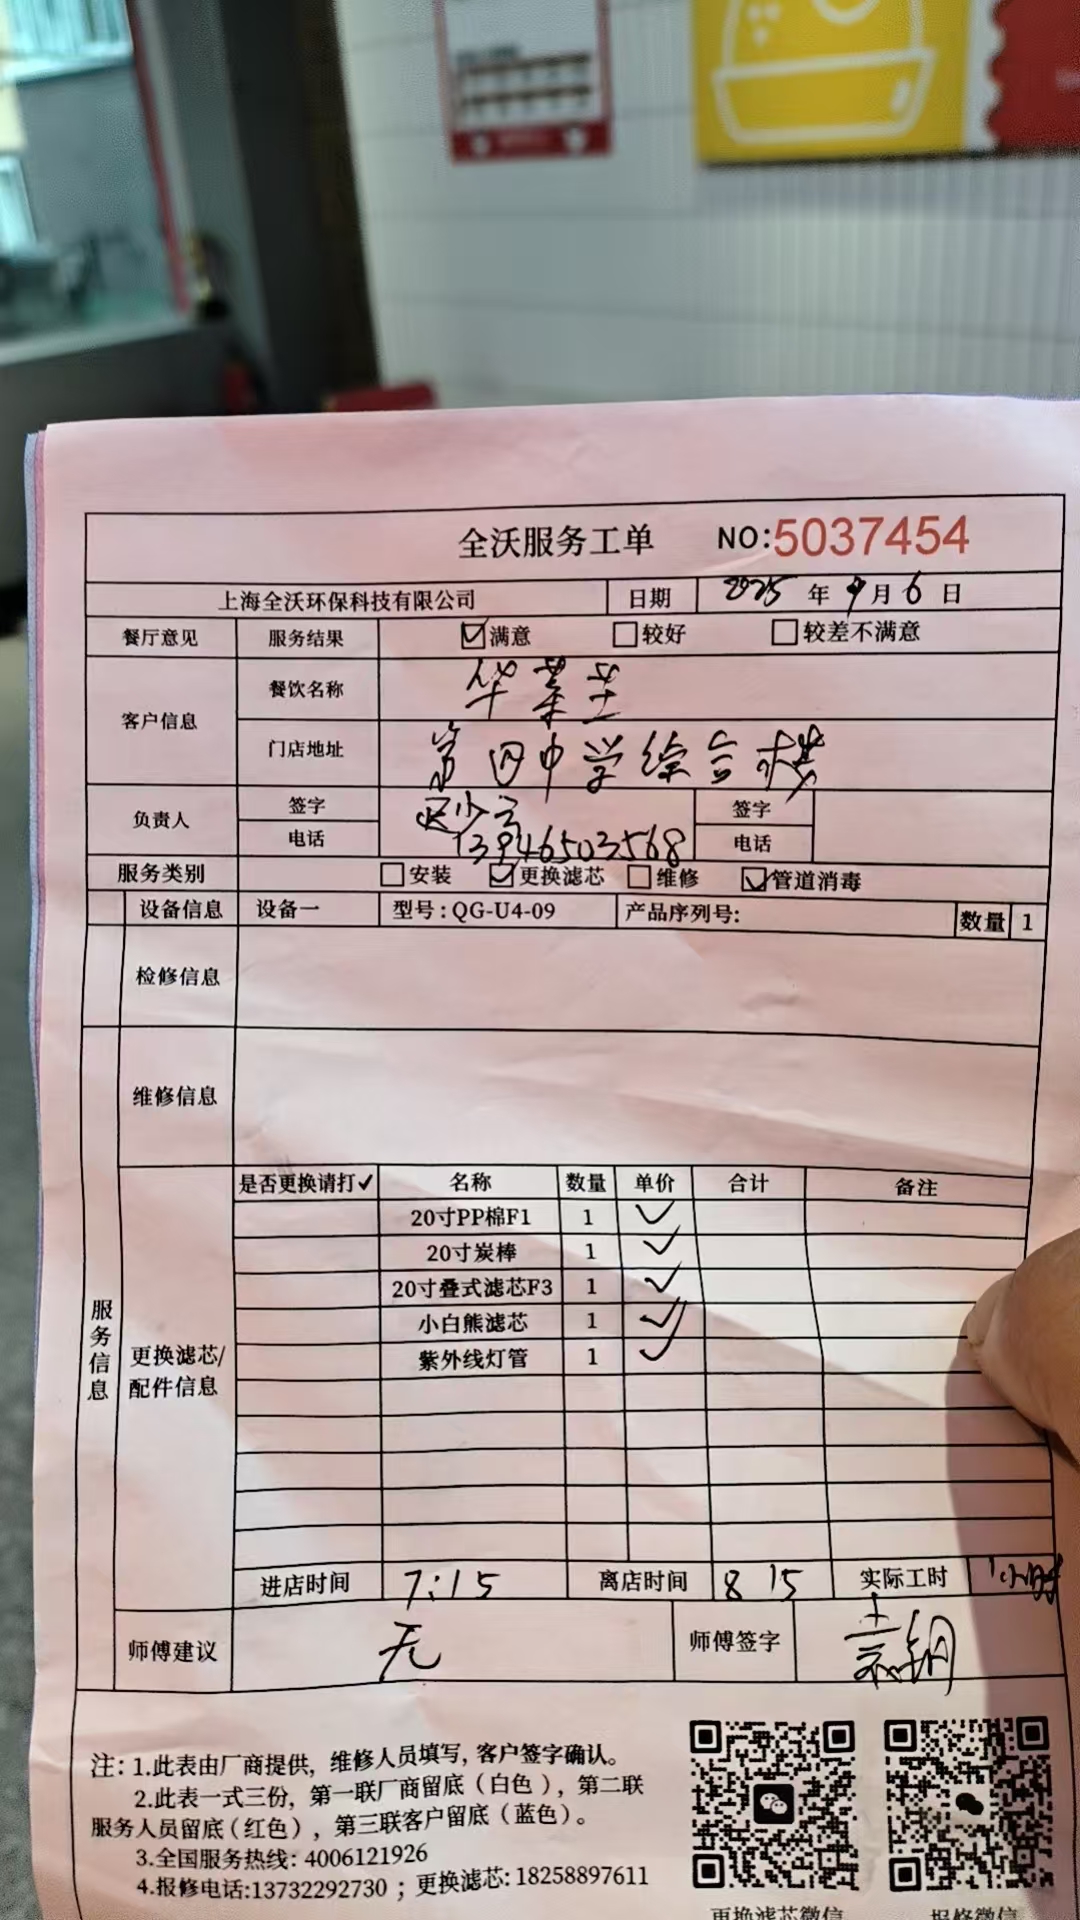 全沃服务工单 NO:5037454
上海全沃环保科技有限公司 日期 2025 年 9 月 6 日
餐厅意见 服务结果 ☑满意 □较好 □较差不满意
客户信息 餐饮名称 华莱士
门店地址 第四中学综合楼
负责人 签字 签字
电话 13946503568 电话
服务类别 □安装 ☑更换滤芯 □维修 ☑管道消毒
设备信息 设备一 型号:QG-U4-09 产品序列号: 数量 1
检修信息
维修信息
服务信息
更换滤芯/
配件信息
是否更换请打✓ 名称 数量 单价 合计 备注
20寸PP棉F1 1 ✓
20寸炭棒 1 ✓
20寸叠式滤芯F3 1 ✓
小白熊滤芯 1 ✓
紫外线灯管 1 ✓
进店时间 7:15 离店时间 8 15 实际工时 1小时
师傅建议 无 师傅签字
注:1.此表由厂商提供,维修人员填写,客户签字确认。
2.此表一式三份,第一联厂商留底(白色),第二联
服务人员留底(红色),第三联客户留底(蓝色)。
3.全国服务热线:4006121926
4.报修电话:13732292730;更换滤芯:18258897611
更换滤芯微信 报修微信